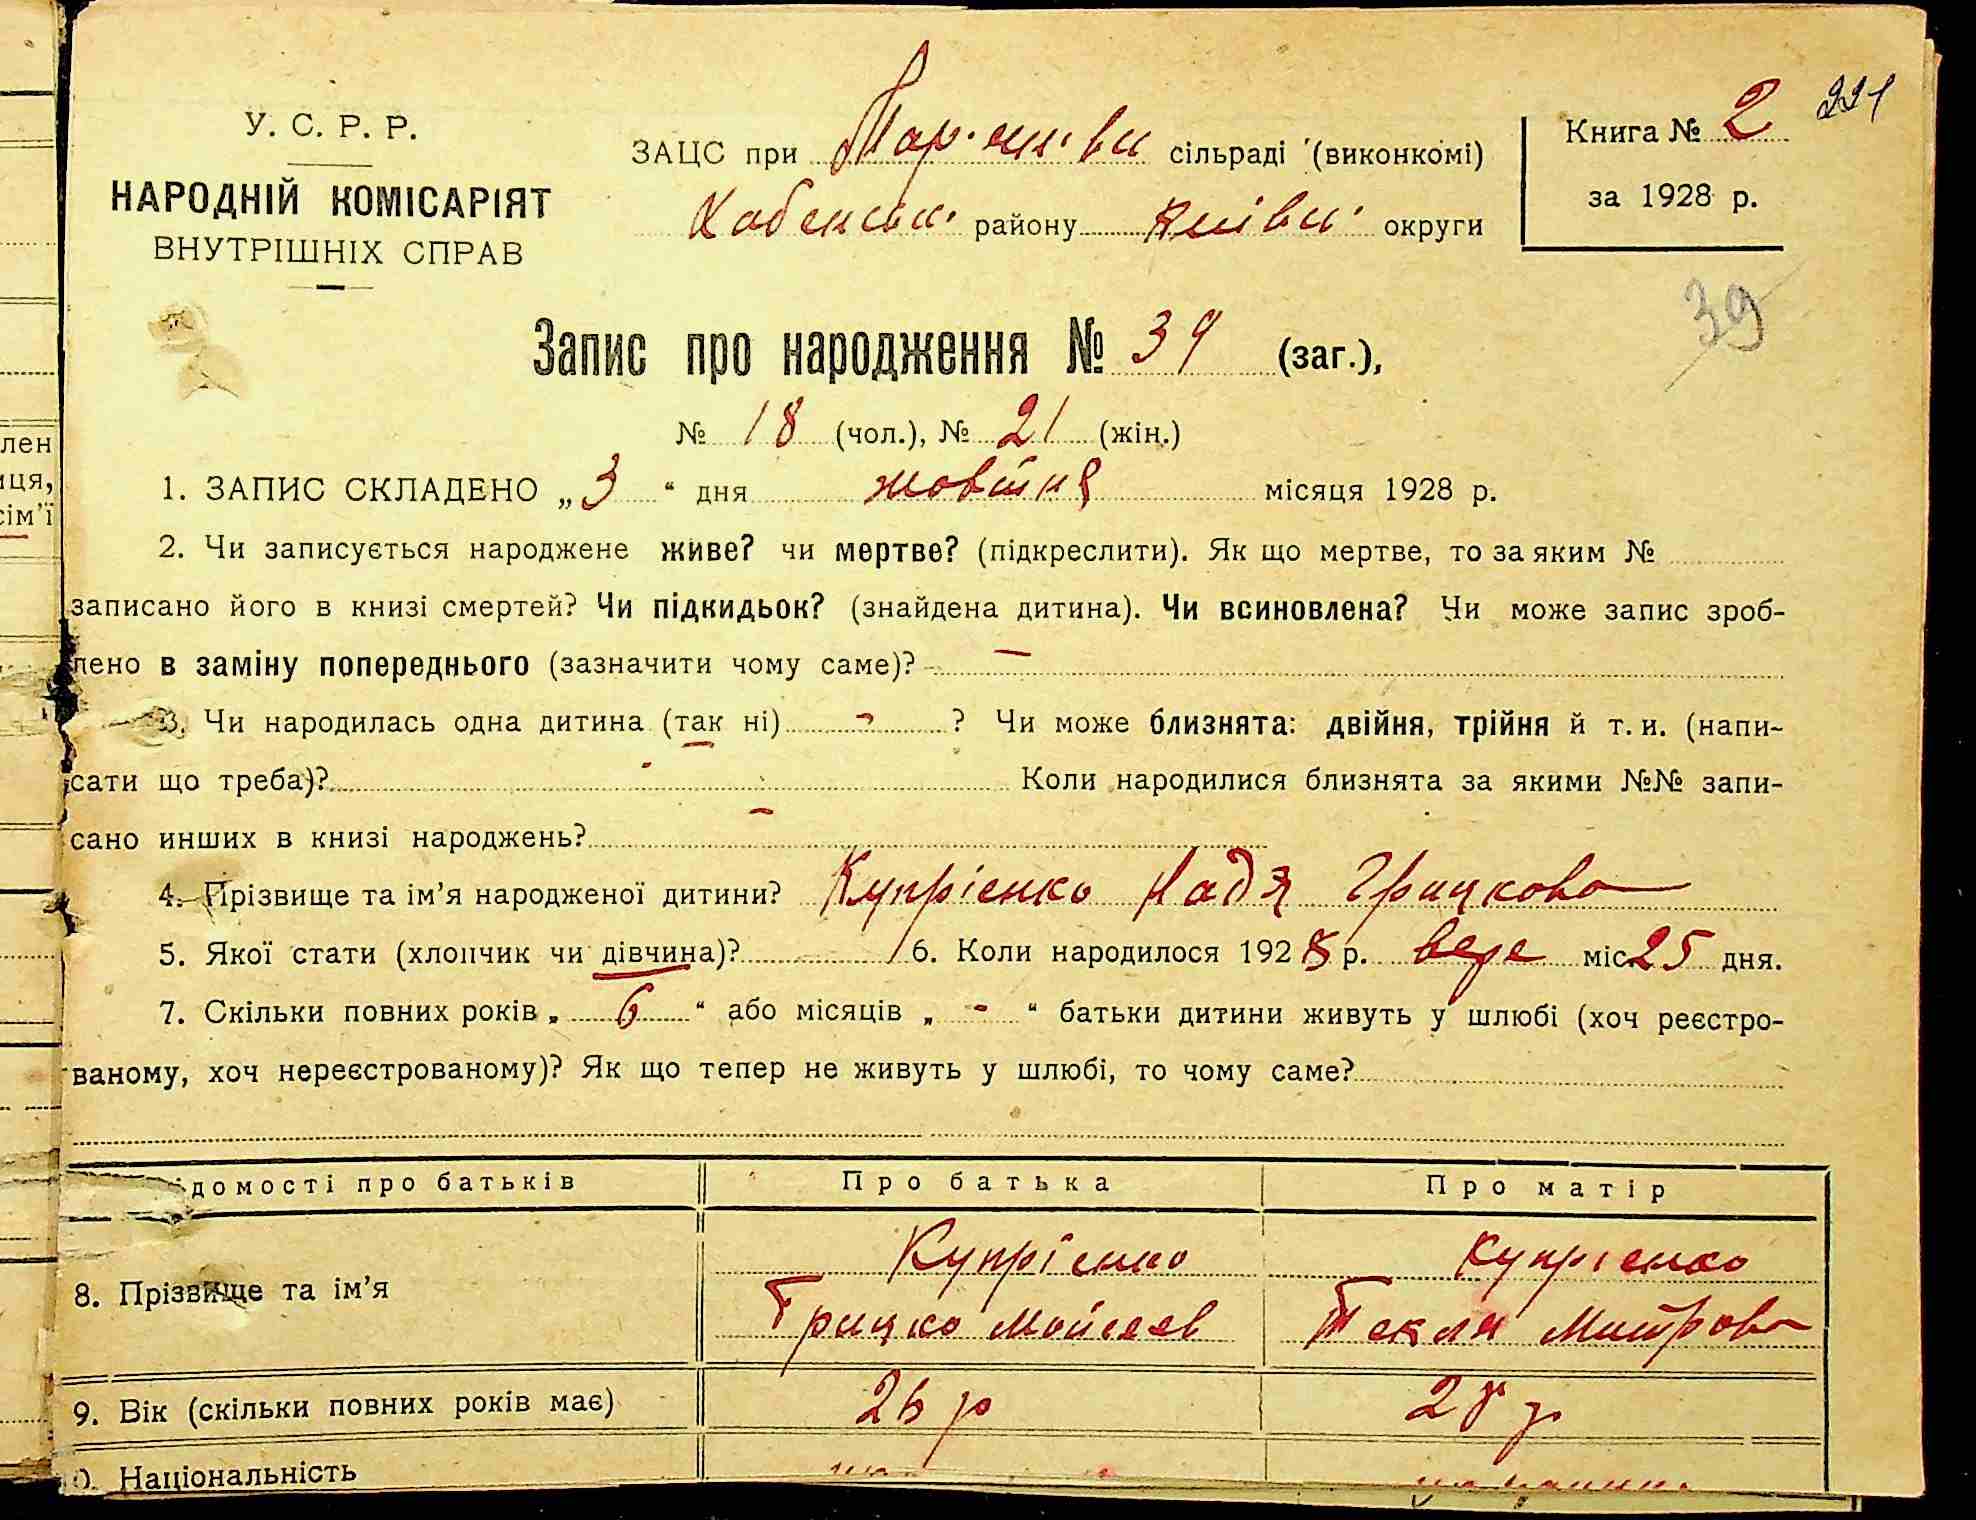 У. С. Р. Р.
НАРОДНІЙ КОМІСАРІЯТ
ВНУТРІШНІХ СПРАВ
ЗАЦС при сільраді (виконкомі)
району Київськ. округи
Книга № 2
за 1928 р.
221
39
Запис про народження № 39 (заг.),
№ 18 (чол.), № 21 (жін.)
1. ЗАПИС СКЛАДЕНО „3“ дня жовтня місяця 1928 р.
2. Чи записується народжене живе? чи мертве? (підкреслити). Як що мертве, то за яким №
записано його в книзі смертей? Чи підкидьок? (знайдена дитина). Чи всиновлена? Чи може запис зроб-
лено в заміну попереднього (зазначити чому саме)? —
3. Чи народилась одна дитина (так ні) - ? Чи може близнята: двійня, трійня й т. и. (напи-
сати що треба)? Коли народилися близнята за якими №№ запи-
сано инших в книзі народжень? —
4. Прізвище та ім’я народженої дитини? Купрієнко Надя Грицкова
5. Якої стати (хлопчик чи дівчина)? 6. Коли народилося 1928 р. вере міс. 25 дня.
7. Скільки повних років „ 6 “ або місяців „ - “ батьки дитини живуть у шлюбі (хоч реєстро-
ваному, хоч нереєстрованому)? Як що тепер не живуть у шлюбі, то чому саме?
ідомості про батьків Про батька Про матір
8. Прізвище та ім’я
Купрієнко Купрієнко
Грицко Мойсеев Текля Митрова
9. Вік (скільки повних років має) 26 р 28 р
0. Національність
лен
иця,
сім’ї